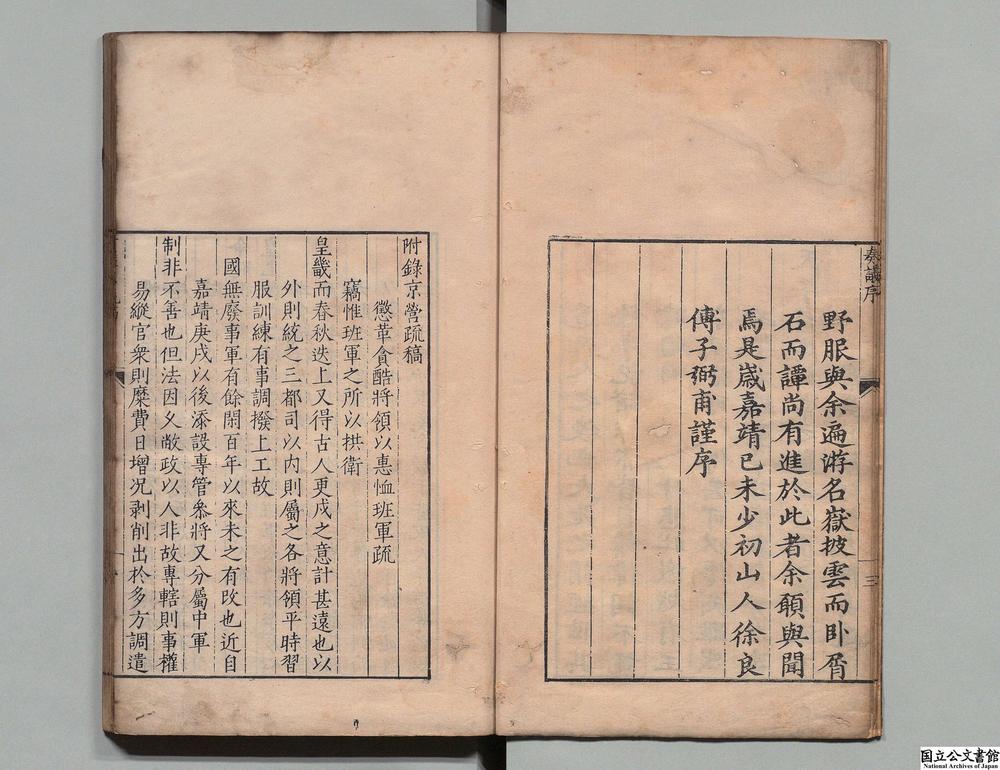 奏議序
三
野服與余遍游名嶽披雲而卧屑
石而譚尚有進於此者余願與聞
焉是嵗嘉靖己未少初山人徐良
傅子弼甫謹序
附錄京營疏稿
懲革貪酷將領以惠恤班軍疏
竊惟班軍之所以拱衛
皇畿而春秋迭上又得古人更戍之意計甚遠也以
外則統之三都司以内則屬之各將領平時習
服訓練有事調撥上工故
國無廢事軍有餘閑百年以來未之有改也近自
嘉靖庚戌以後添設專管叅將又分屬中軍
制非不善也但法因久敝政以人非故專轄則事權
易縱官衆則糜費日增况剥削出於多方調遣
国立公文書館
National Archives of Japan